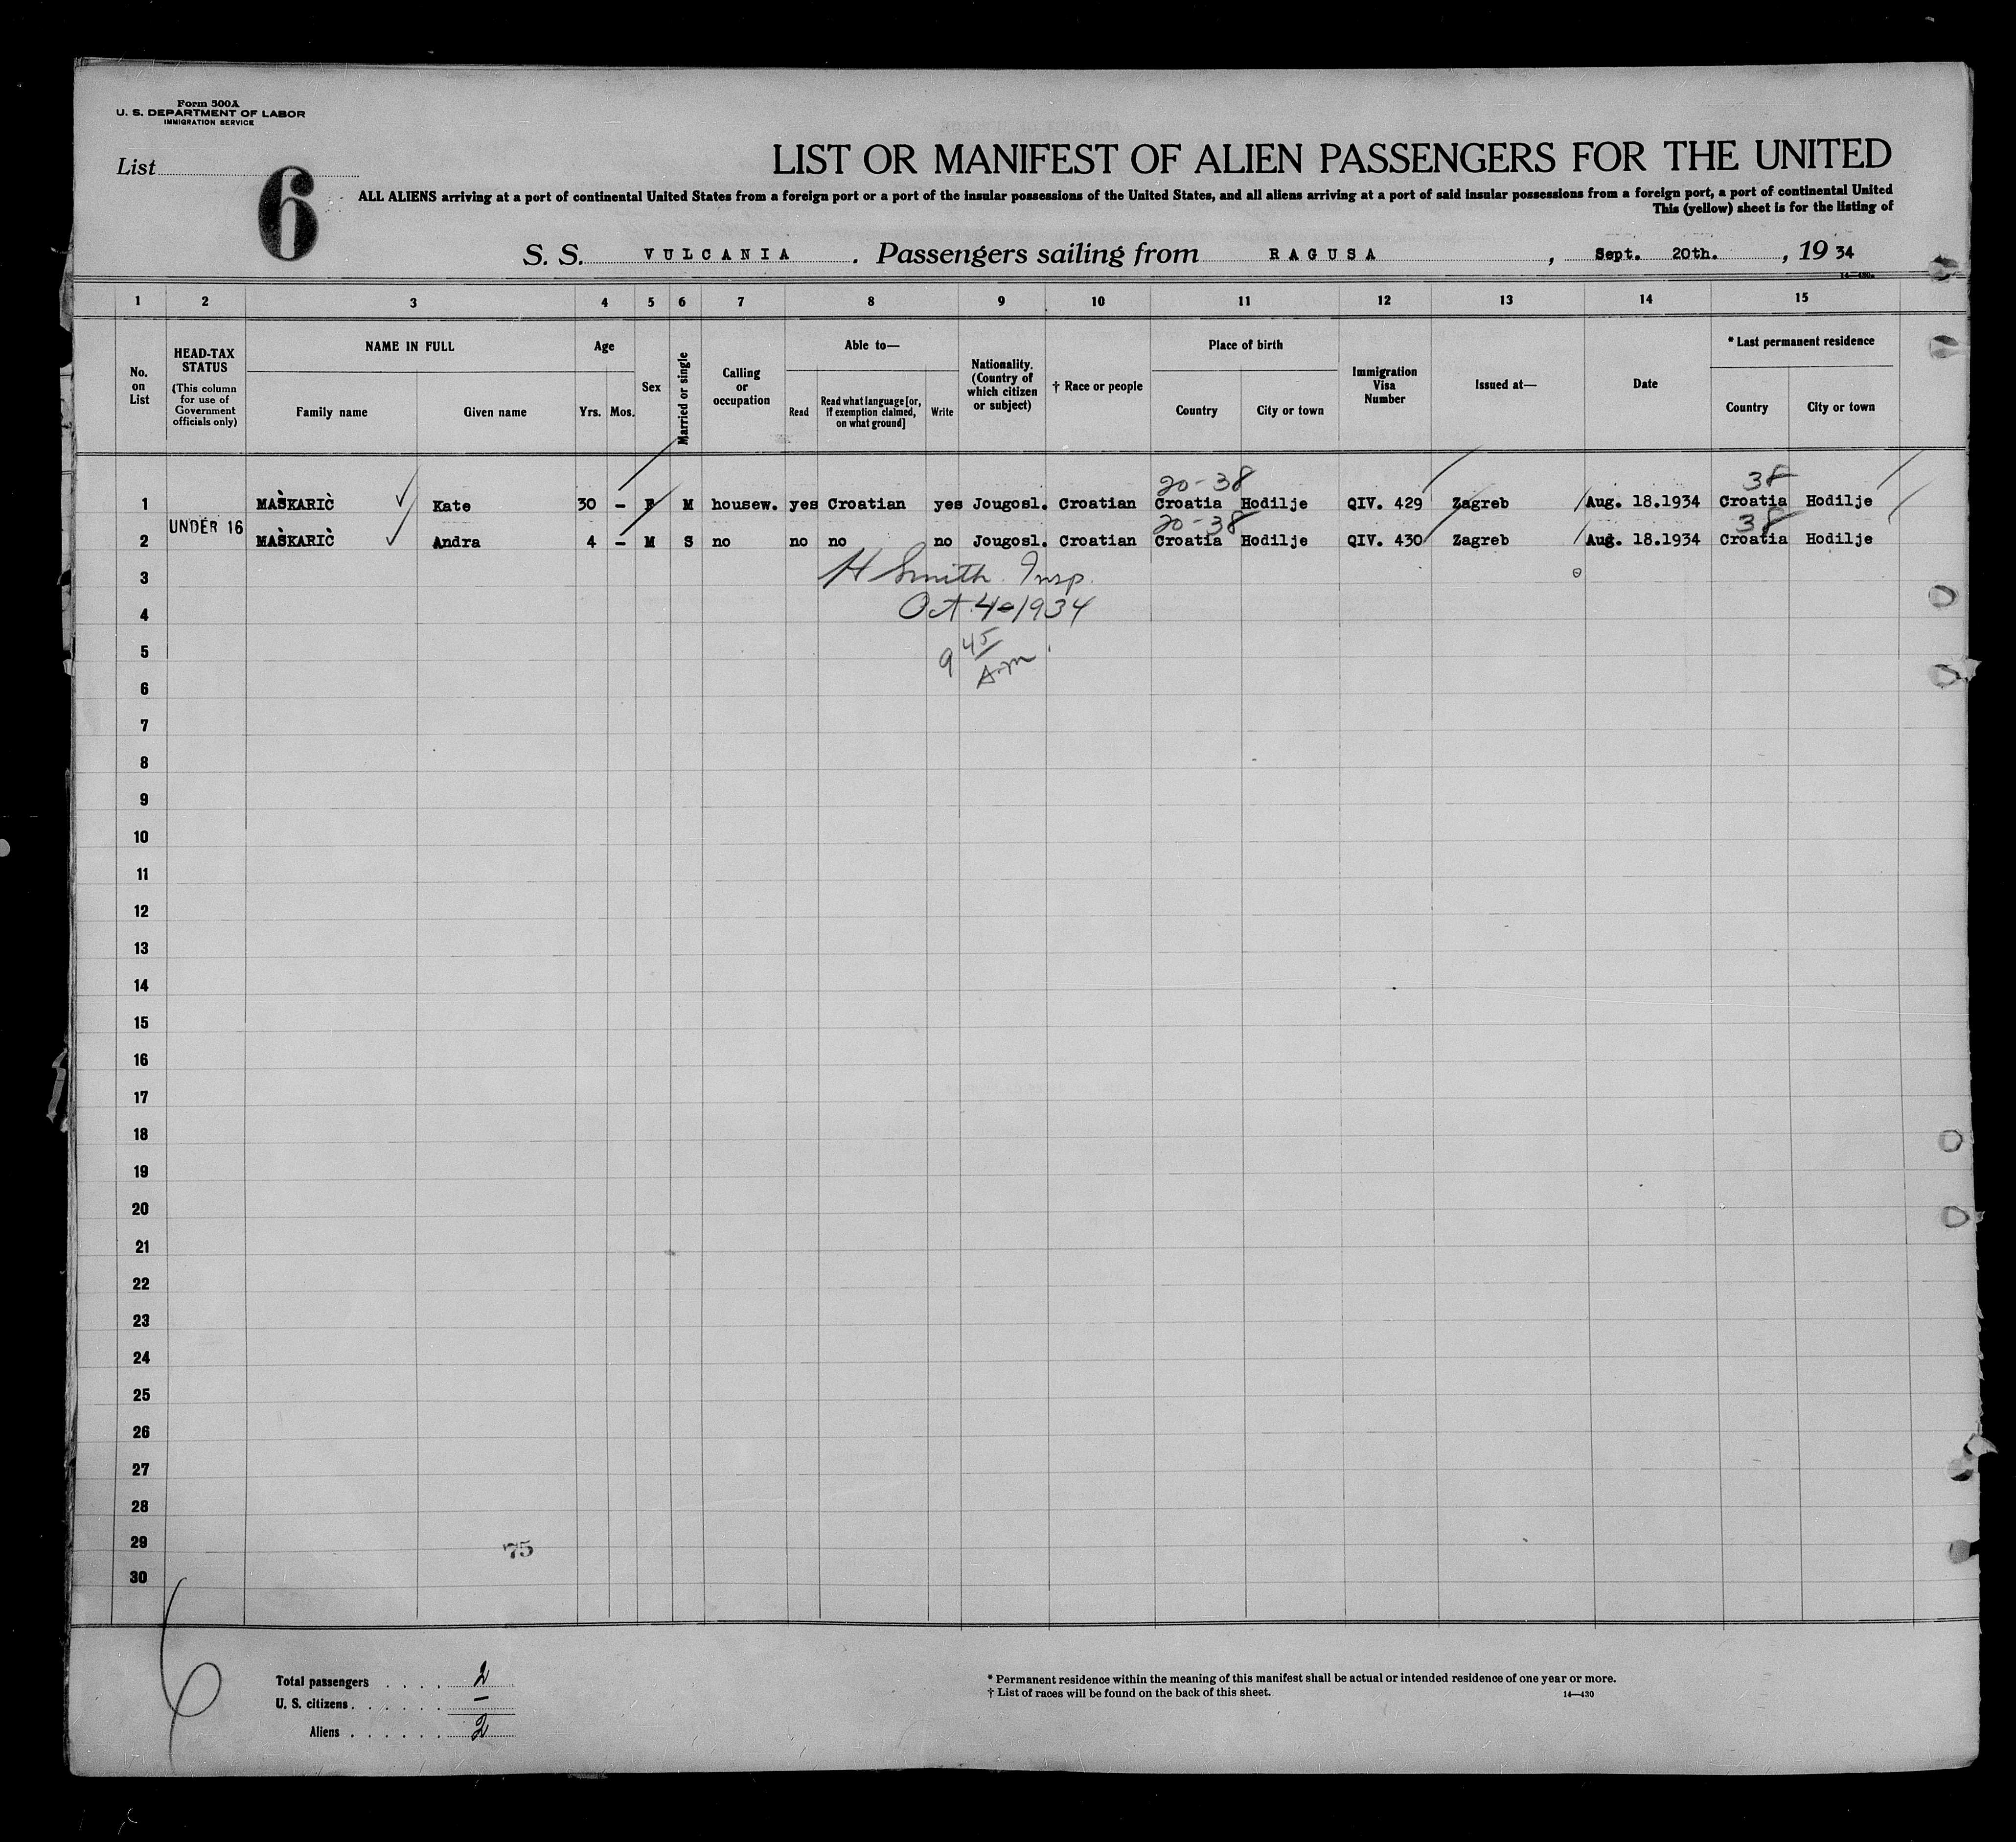 Form 500A
U. S. DEPARTMENT OF LABOR
IMMIGRATION SERVICE
List
6
LIST OR MANIFEST OF ALIEN PASSENGERS FOR THE UNITED
ALL ALIENS arriving at a port of continental United States from a foreign port or a port of the insular possessions of the United States, and all aliens arriving at a port of said insular possessions from a foreign port, a port of continental United
This (yellow) sheet is for the listing of
S. S. VULCANIA . Passengers sailing from RAGUSA , Sept. 20th. , 19 34
14—430
1 2 3 4 5 6 7 8 9 10 11 12 13 14 15
No. on List
HEAD-TAX STATUS
(This column for use of Government officials only)
NAME IN FULL
Family name Given name
Age
Yrs. Mos.
Sex
Married or single
Calling or occupation
Able to—
Read
Read what language [or, if exemption claimed, on what ground]
Write
Nationality. (Country of which citizen or subject)
† Race or people
Place of birth
Country City or town
Immigration Visa Number
Issued at—
Date
* Last permanent residence
Country City or town
20-38 38
1 MAŠKARIČ Kate 30 - F M housew. yes Croatian yes Jougosl. Croatian Croatia Hodilje QIV. 429 Zagreb Aug. 18.1934 Croatia Hodilje
UNDER 16 20-38 38
2 MAŠKARIČ Andra 4 - M S no no no no Jougosl. Croatian Croatia Hodilje QIV. 430 Zagreb Aug. 18.1934 Croatia Hodilje
3 H Smith Insp.
4 Oct. 4-1934
5 9 45 A.M
6
7
8
9
10
11
12
13
14
15
16
17
18
19
20
21
22
23
24
25
26
27
28
29 75
30
6
Total passengers . . . . 2
U. S. citizens . . . . . . —
Aliens . . . . . . 2
* Permanent residence within the meaning of this manifest shall be actual or intended residence of one year or more.
† List of races will be found on the back of this sheet. 14—430